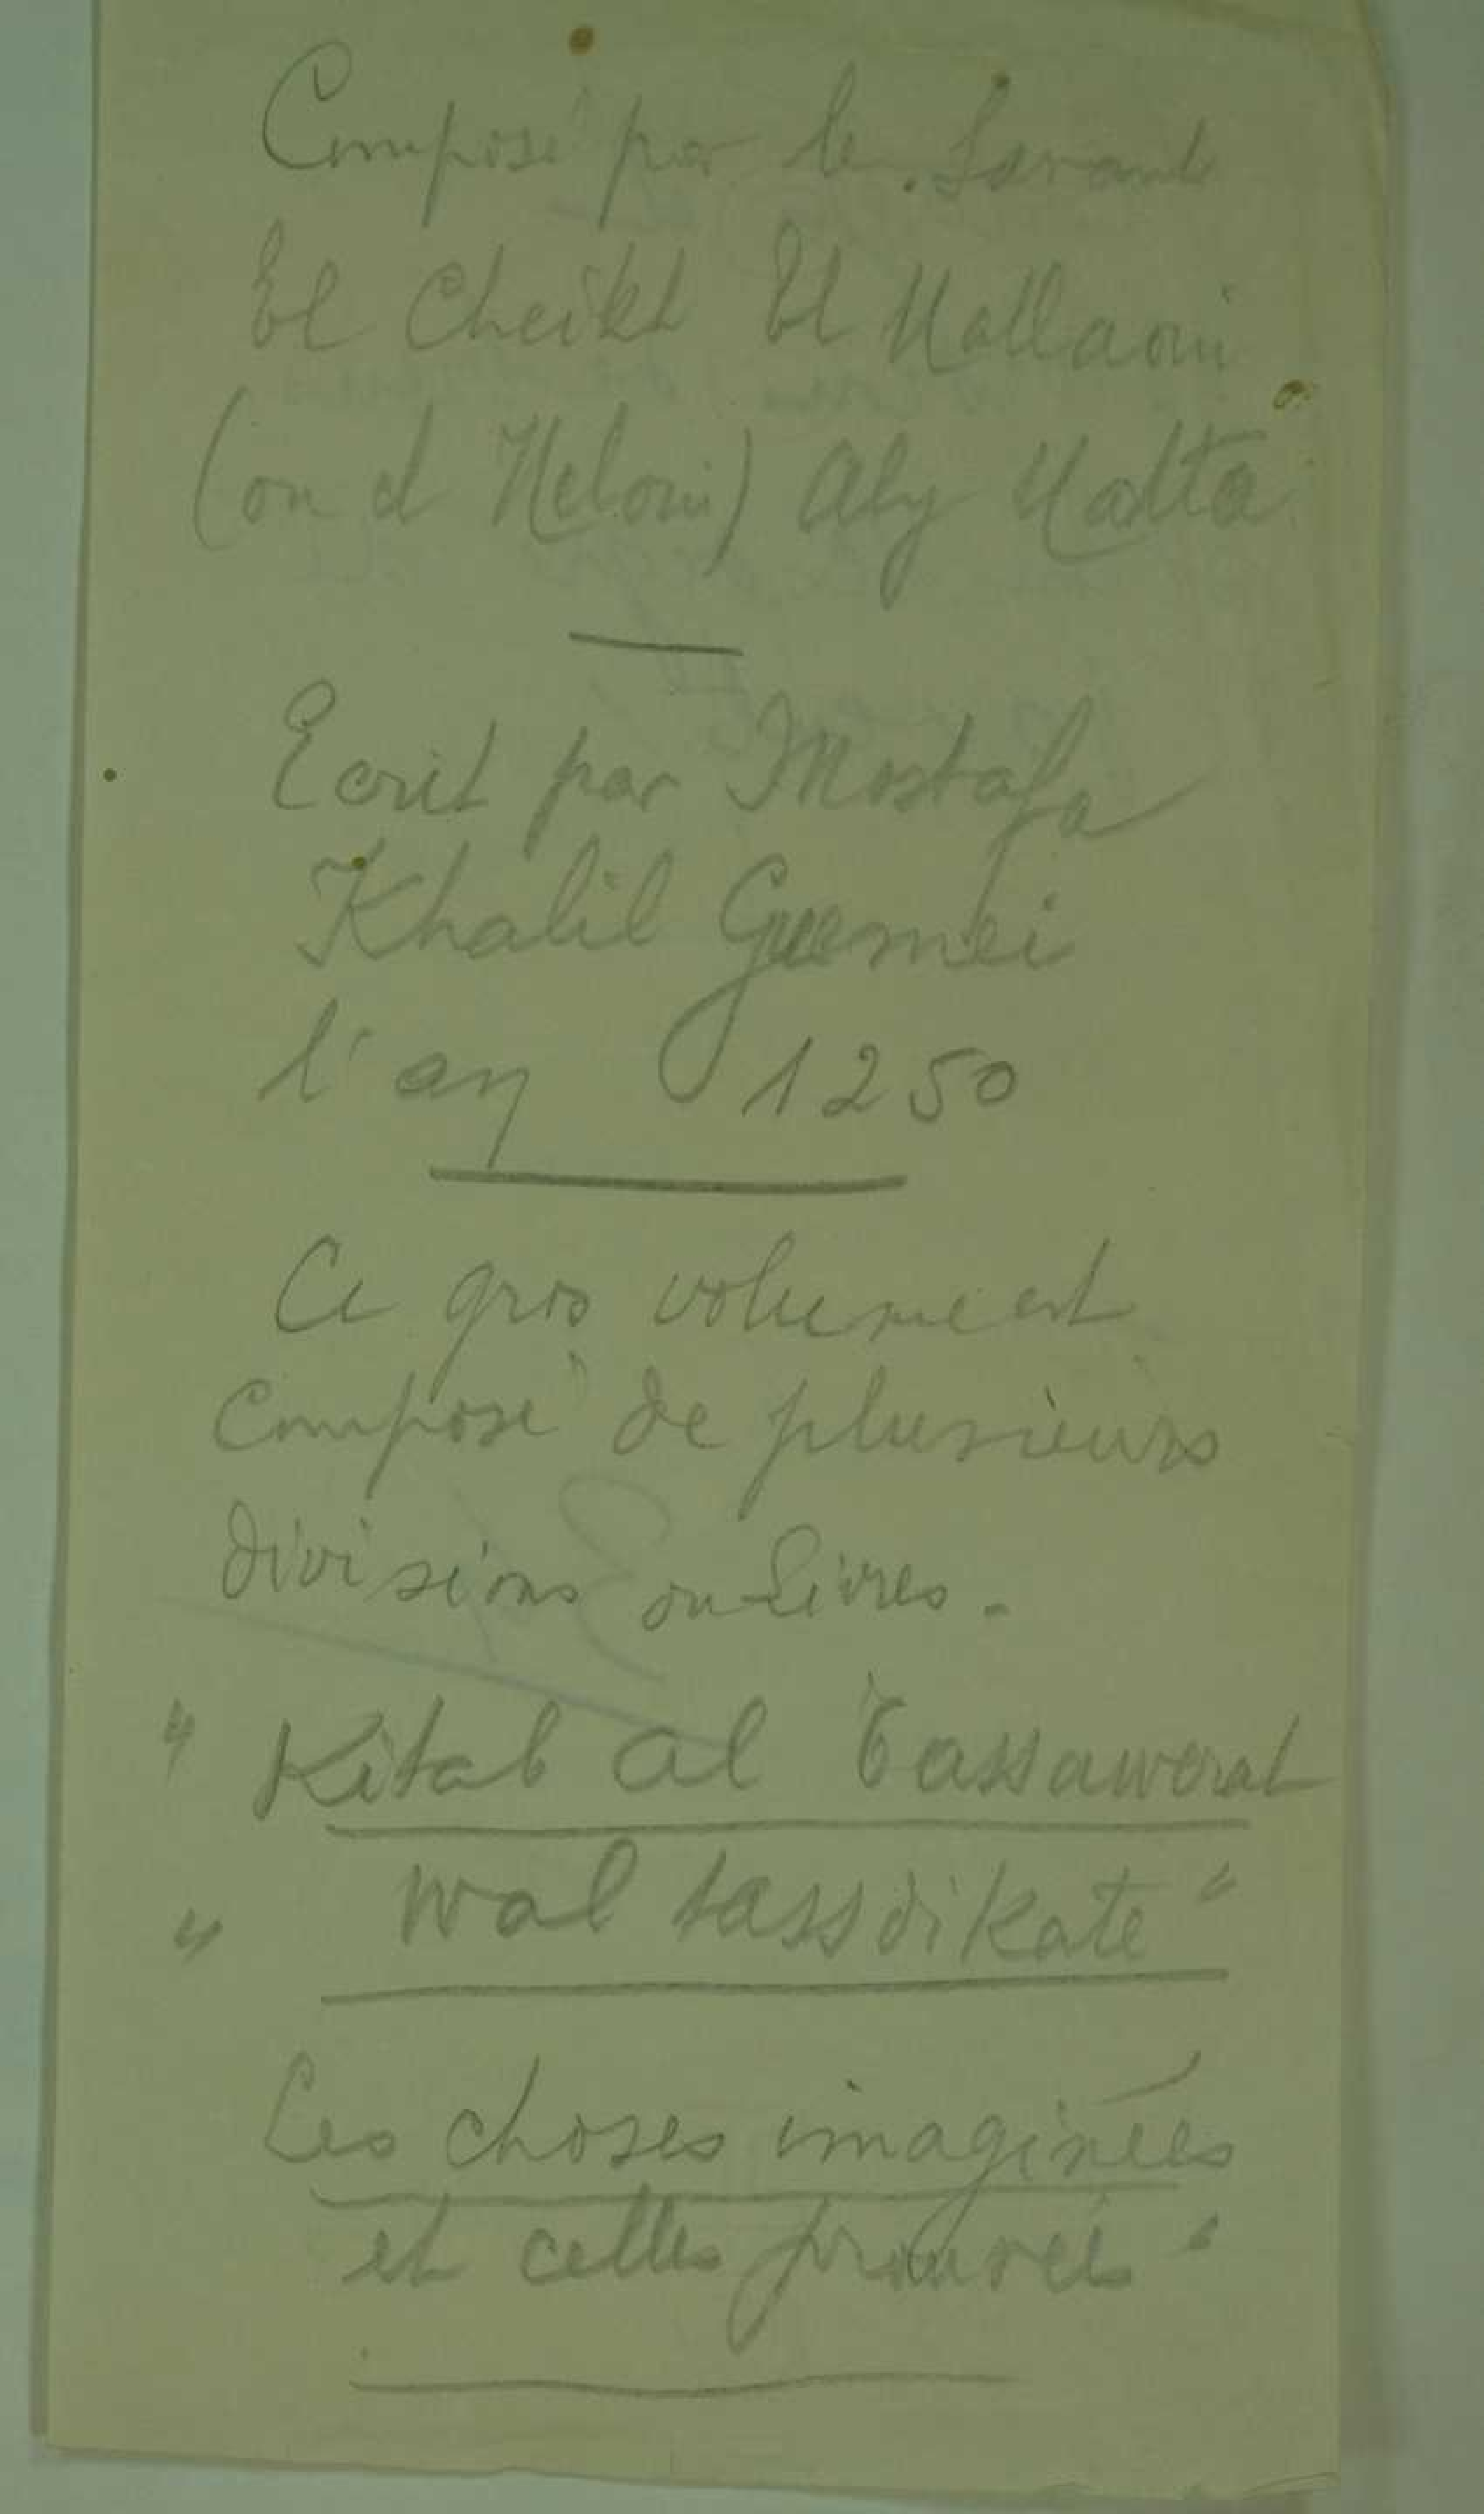 Composé par le Savant
El Cheikh El Mallaoui
(ou el Meloui) Aly
Ecrit par Mostafa
Khalil Guemei
l'an 1250
Ce gros volume est
composé de plusieurs
divisions ou Livres.
" Kitab al Tassawerat
" wal tassdikate "
Les choses imaginées
et celles prouvées "